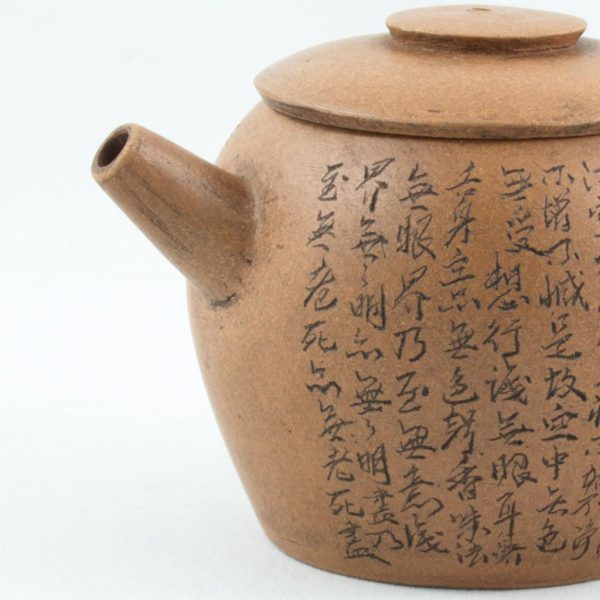 不增不減是故空中無色
無受想行識無眼耳鼻
舌身意無色聲香味法
無眼界乃至無意識
界無々明亦無々明盡乃
至無老死亦無老死盡